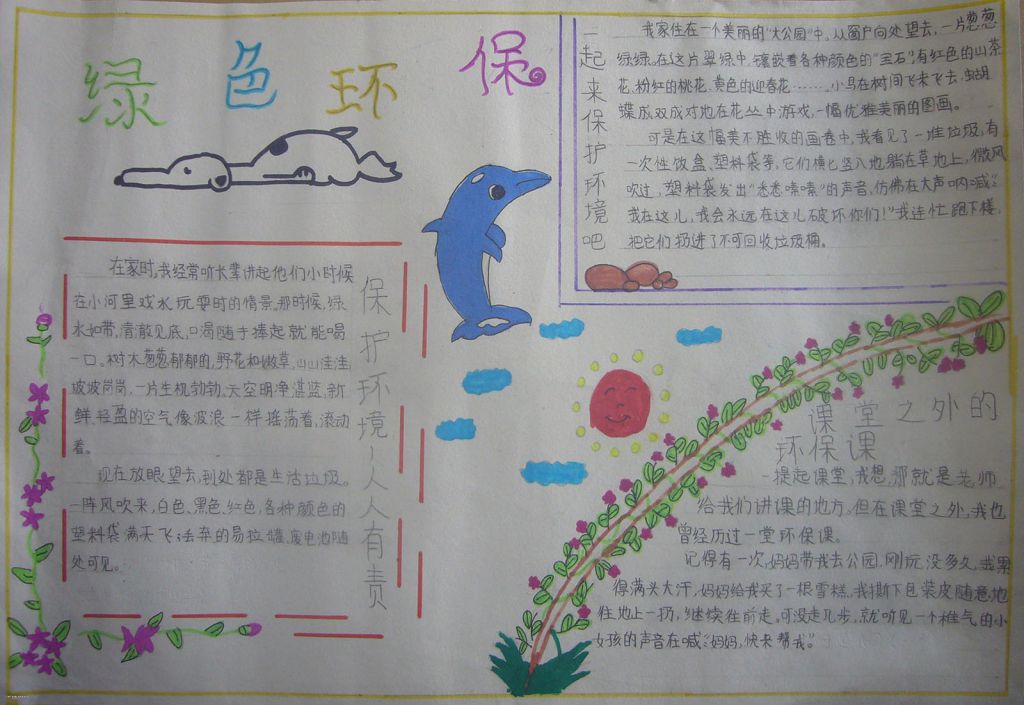 绿色环保
一起来保护环境吧
我家住在一个美丽的"大公园"中。从窗户向处望去,一片葱葱
绿绿。在这片翠绿中,镶嵌着各种颜色的"宝石":有红色的山茶
花、粉红的桃花、黄色的迎春花……,小鸟在树间飞来飞去,蝴
蝶成双成对地在花丛中游戏,一幅优雅美丽的图画。
可是在这幅美不胜收的画卷中,我看见了一堆垃圾,有
一次性饭盒、塑料袋等,它们横七竖八地躺在草地上,微风
吹过,塑料袋发出"悉悉嗦嗦"的声音,仿佛在大声呐喊:"
我在这儿,我会永远在这儿破坏你们!"我连忙跑下楼,
把它们扔进了不可回收垃圾桶。
保护环境,人人有责
在家时,我经常听长辈讲起他们小时候
在小河里戏水玩耍时的情景。那时候,绿
水如带,清澈见底,口渴随手捧起就能喝
一口。树木葱葱郁郁的,野花和嫩草,山山洼洼
坡坡岗岗,一片生机勃勃,天空明净湛蓝,新
鲜轻盈的空气像波浪一样摇荡着,滚动
着。
现在放眼望去,到处都是生活垃圾。
一阵风吹来,白色、黑色、红色,各种颜色的
塑料袋满天飞;丢弃的易拉罐、废电池随
处可见。
课堂之外的
环保课
一提起课堂,我想,那就是老师
给我们讲课的地方。但在课堂之外,我也
曾经历过一堂环保课。
记得有一次,妈妈带我去公园,刚玩没多久,我累
得满头大汗,妈妈给我买了一根雪糕,我撕下包装皮随意地
往地上一扔,继续往前走。可没走几步,就听见一个稚气的小
女孩的声音在喊:"妈妈,快来帮我"